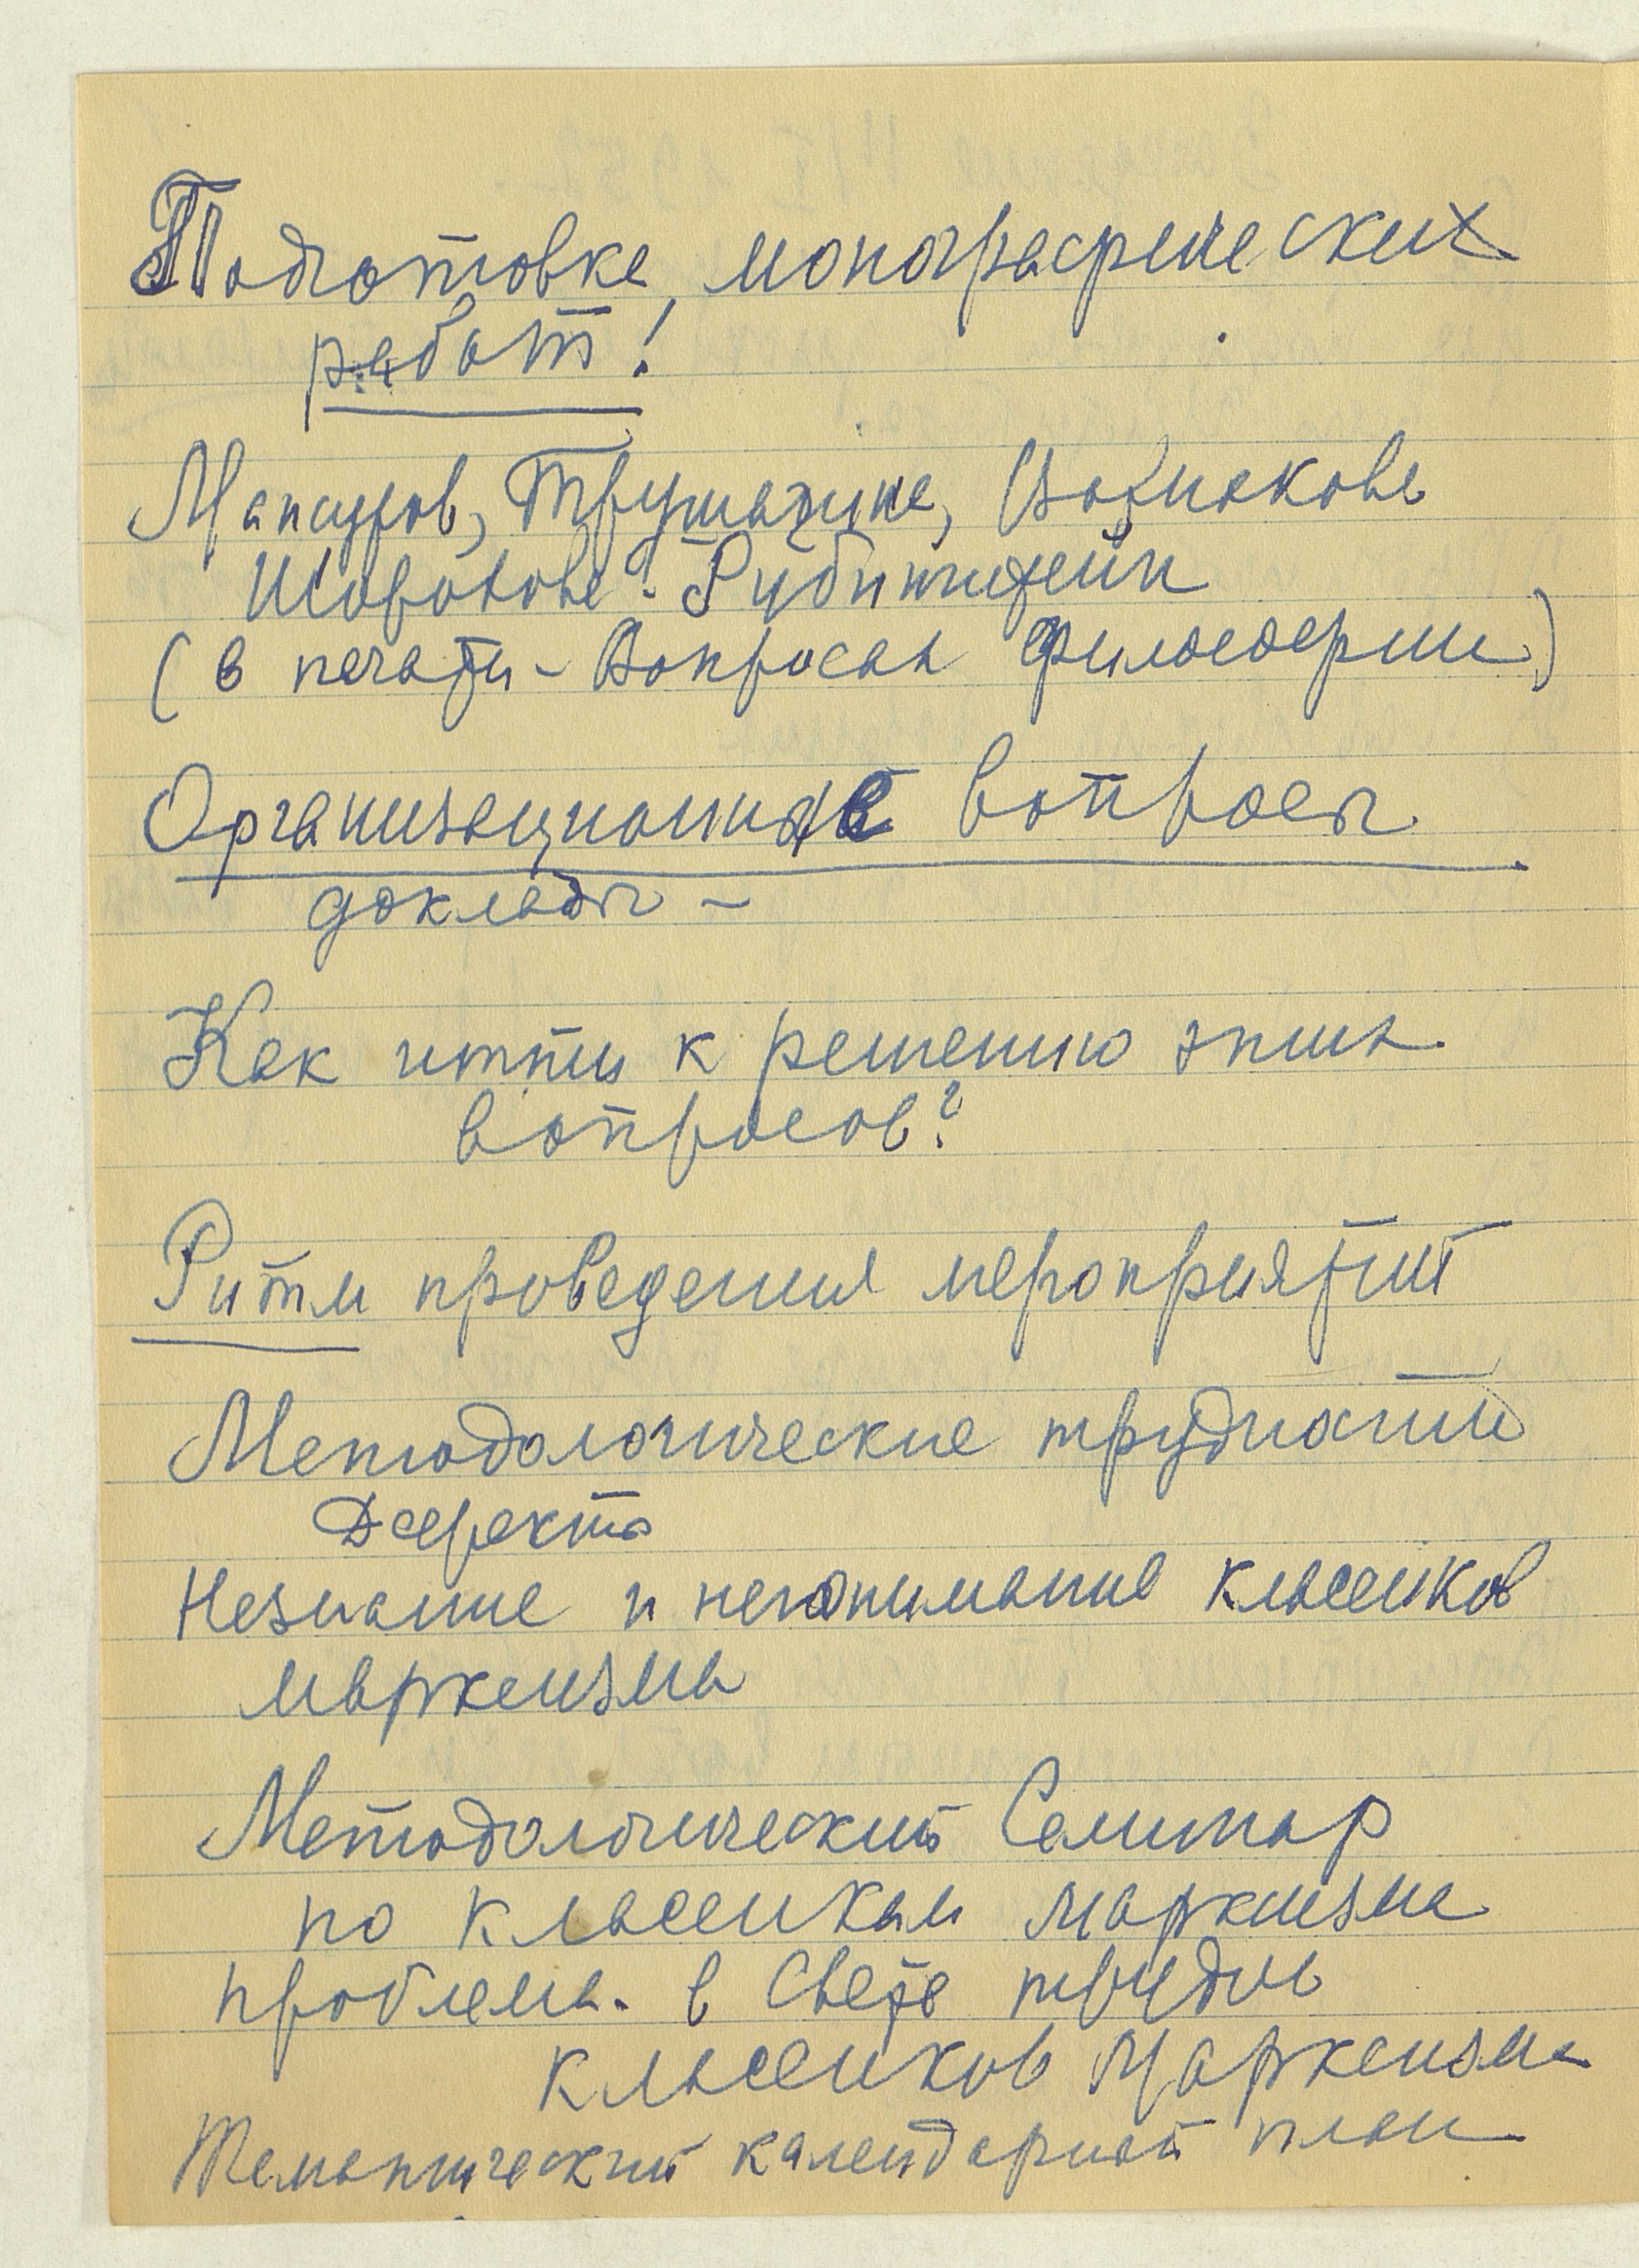 Подготовка монографических
работ!
Мансуров, Трушакина,
Шорохова - Рубинштейн
(в печати - Вопросах философии)
Организационные вопросы
доклады -
Как итти к решению этих
вопросов?
Ритм проведения мероприятий
Методологические трудности
Дефекты
Незнание и непонимание классиков
марксизма
Методологический Семинар
по классикам марксизма
проблема. в свете трудов
классиков Марксизма
Тематический календарный план